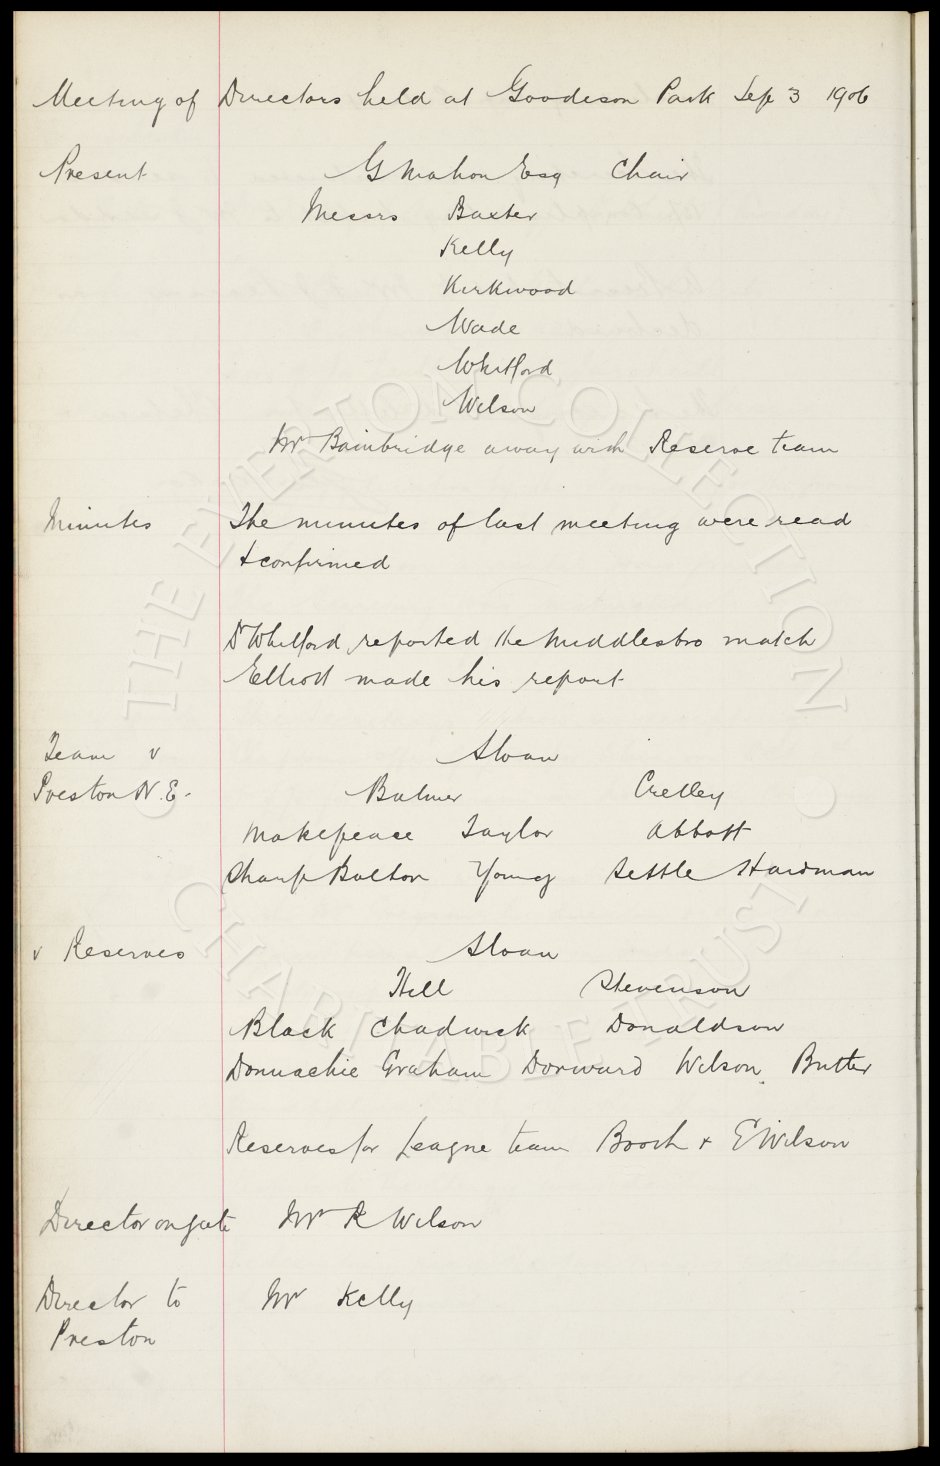 Meeting of Directors held at Goodison Park Sep 3 1906
Present G Mahon Esq Chair
Messrs Baxter
Kelly
Kirkwood
Wade
Whitford
Wilson
Mr Bainbridge away with Reserve team
Minutes The minutes of last meeting were read
& confirmed
Dr Whitford reported the Middlesbro match
Elliott made his report
Team v Sloan
Preston N.E. Balmer Crelley
Makepeace Taylor Abbott
Sharp Bolton Young Settle Hardman
v Reserves Sloan
Hill Stevenson
Black Chadwick Donaldson
Donnachie Graham Dorward Wilson Butler
Reserves for League team Booth & E Wilson
Director on gate Mr R Wilson
Director to Mr Kelly
Preston
THE EVERTON COLLECTION
CHARITABLE TRUST